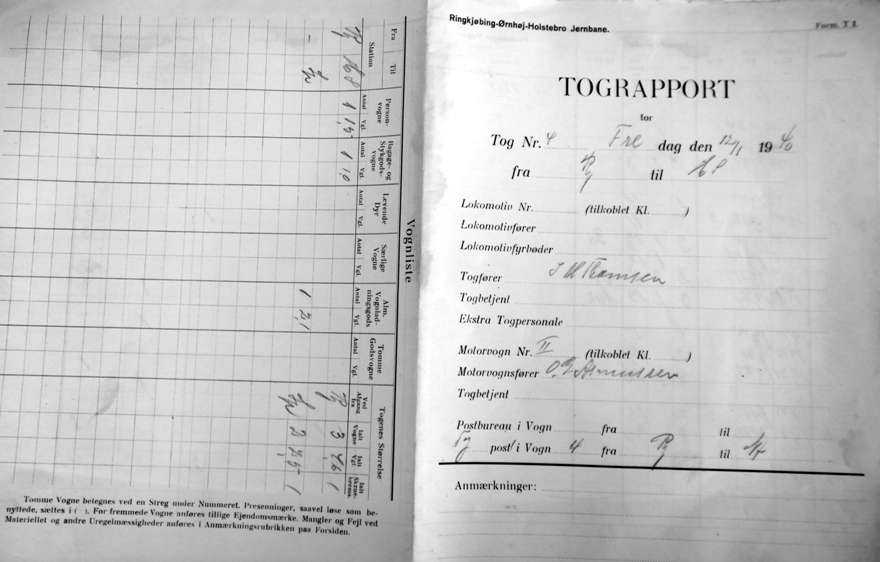 Fra Til
Station
Person-
vogne
Antal Vgl.
Bagage- og
Stykgods-
vogne
Antal Vgl.
Levende
Dyr
Antal Vgl.
Særlige
Vogne
Antal Vgl.
Alm.
Vognlad-
ningsgods
Antal Vgl.
Tomme
Godsvogne
Antal Vgl.
Togenes Størrelse
Ved
Afgang
fra
Ialt
Vogne
Ialt
Vgl.
Skrue-
bremser
Vognliste
Tomme Vogne betegnes ved en Streg under Nummeret. Presenninger, saavel løse som be-
nyttede, sættes i ( ). For fremmede Vogne anføres tillige Ejendomsmærke. Mangler og Fejl ved
Materiellet og andre Uregelmæssigheder anføres i Anmærkningsrubrikken paa Forsiden.
Ringkjøbing-Ørnhøj-Holstebro Jernbane.
Form. T 1.
TOGRAPPORT
for
Tog Nr. 4 Fre dag den 12/1 1940
fra Rj til HS
Lokomotiv Nr. (tilkoblet Kl. )
Lokomotivfører
Lokomotivfyrbøder
Togfører Thomsen
Togbetjent
Ekstra Togpersonale
Motorvogn Nr. II (tilkoblet Kl. )
Motorvognsfører Asmussen
Togbetjent
Postbureau i Vogn fra til
post i Vogn 4 fra Rj til
Anmærkninger: